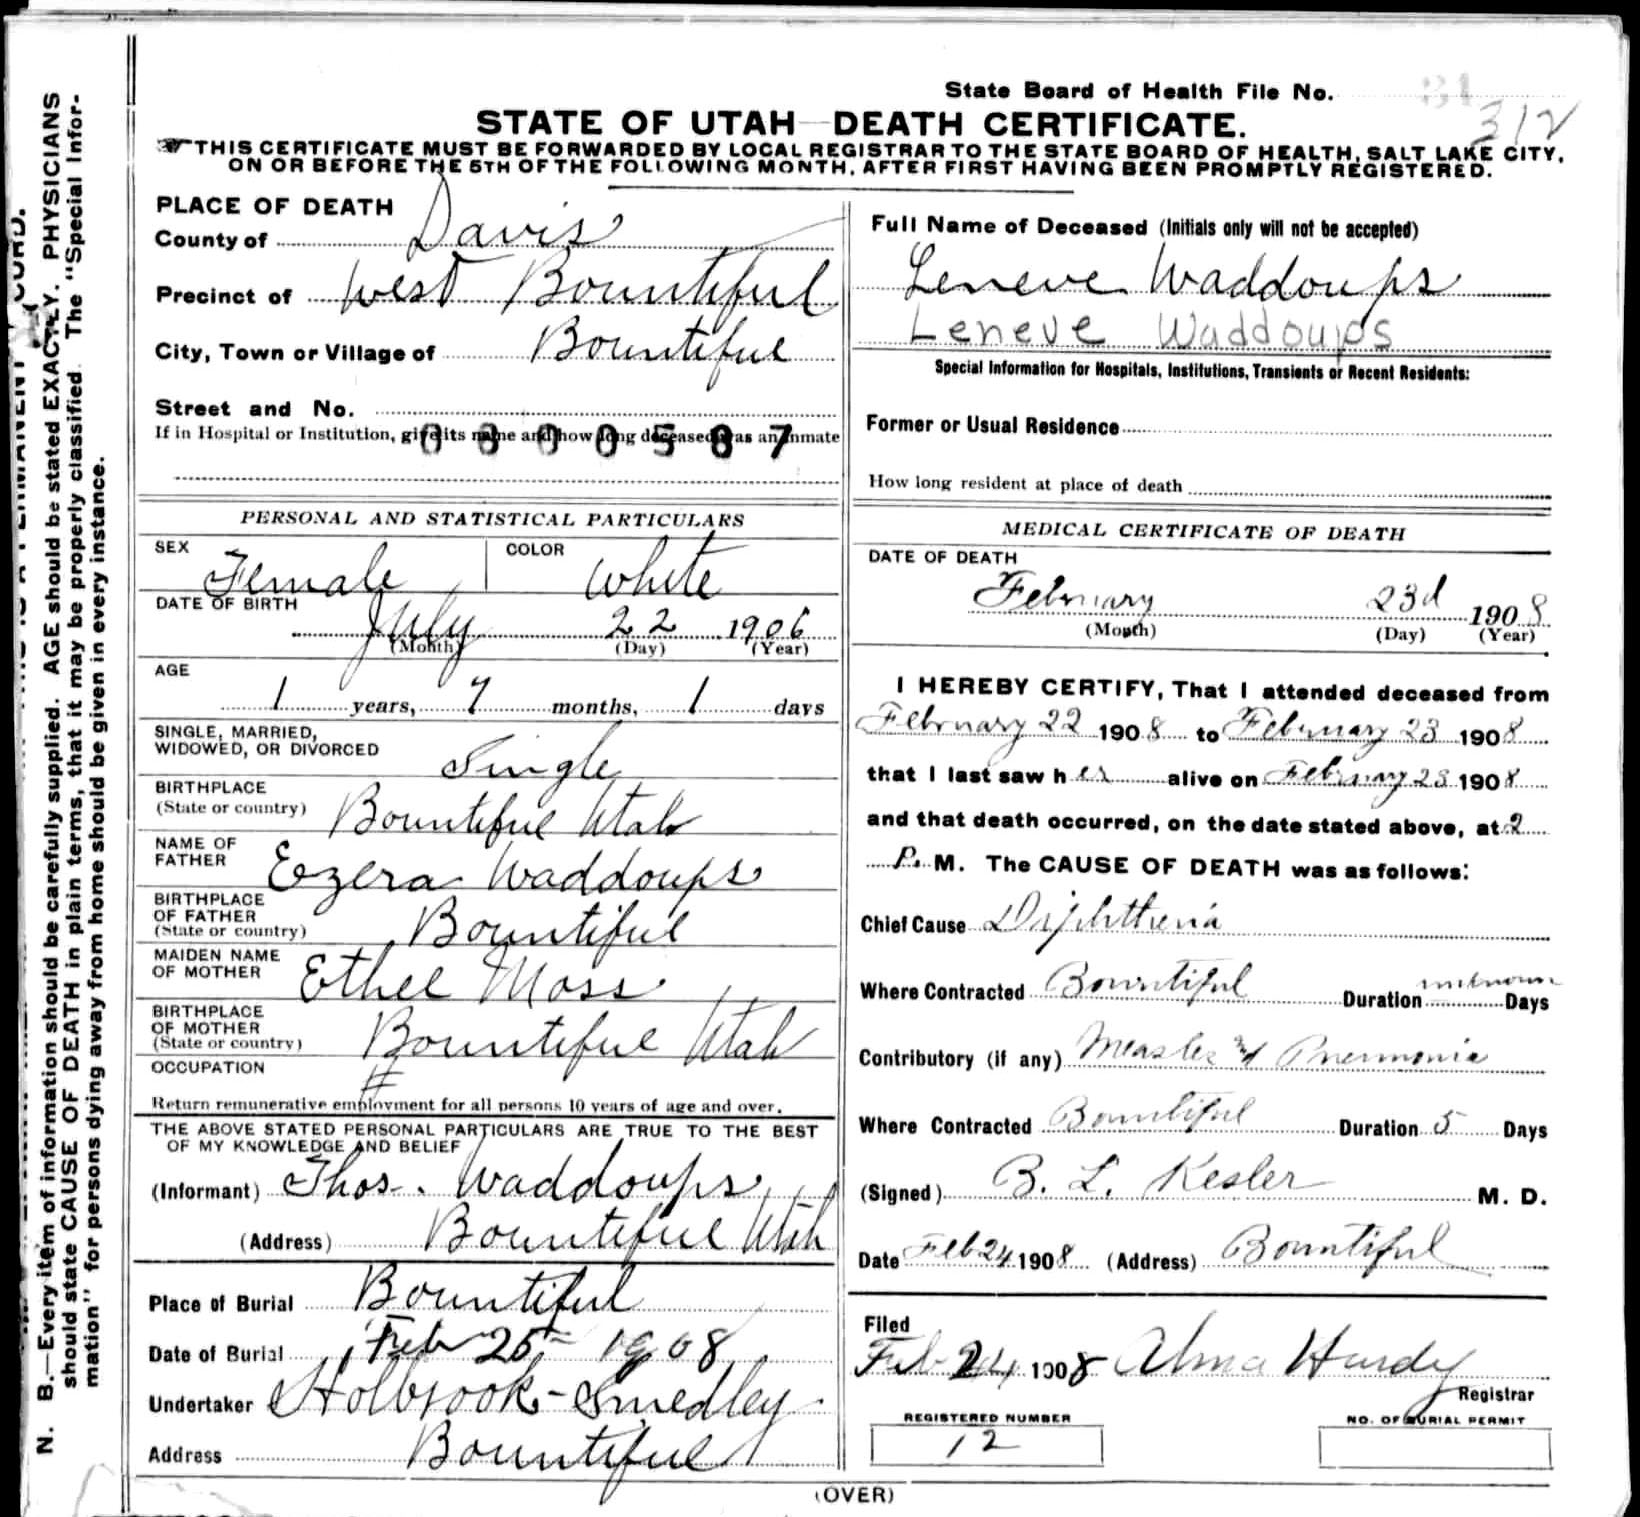 State Board of Health File No. 312
STATE OF UTAH—DEATH CERTIFICATE.
THIS CERTIFICATE MUST BE FORWARDED BY LOCAL REGISTRAR TO THE STATE BOARD OF HEALTH, SALT LAKE CITY,
ON OR BEFORE THE 5TH OF THE FOLLOWING MONTH, AFTER FIRST HAVING BEEN PROMPTLY REGISTERED.
PLACE OF DEATH
County of Davis
Precinct of West Bountiful
City, Town or Village of Bountiful
Street and No.
If in Hospital or Institution, give its name and how long deceased was an inmate
0800587
PERSONAL AND STATISTICAL PARTICULARS
SEX Female COLOR White
DATE OF BIRTH
July 22 1906
(Month) (Day) (Year)
AGE
1 years, 7 months, 1 days
SINGLE, MARRIED,
WIDOWED, OR DIVORCED Single
BIRTHPLACE
(State or country) Bountiful Utah
NAME OF
FATHER Ezera Waddoups
BIRTHPLACE
OF FATHER
(State or country) Bountiful
MAIDEN NAME
OF MOTHER Ethel Moss
BIRTHPLACE
OF MOTHER
(State or country) Bountiful Utah
OCCUPATION
Return remunerative employment for all persons 10 years of age and over.
THE ABOVE STATED PERSONAL PARTICULARS ARE TRUE TO THE BEST
OF MY KNOWLEDGE AND BELIEF
(Informant) Thos. Waddoups
(Address) Bountiful Utah
Place of Burial Bountiful
Date of Burial Feb 25 1908
Undertaker Holbrook-Smedley
Address Bountiful
Full Name of Deceased (Initials only will not be accepted)
Leneve Waddoups
Leneve Waddoups
Special Information for Hospitals, Institutions, Transients or Recent Residents:
Former or Usual Residence
How long resident at place of death
MEDICAL CERTIFICATE OF DEATH
DATE OF DEATH
February 23d 1908
(Month) (Day) (Year)
I HEREBY CERTIFY, That I attended deceased from
February 22 1908 to February 23 1908
that I last saw her alive on February 23 1908
and that death occurred, on the date stated above, at 2
P. M. The CAUSE OF DEATH was as follows:
Chief Cause Diphtheria
Where Contracted Bountiful Duration unknown Days
Contributory (if any) Measles and Pneumonia
Where Contracted Bountiful Duration 5 Days
(Signed) B. L. Kesler M. D.
Date Feb 24 1908 (Address) Bountiful
Filed
Feb 24 1908 Alma Hardy
Registrar
REGISTERED NUMBER
12
NO. OF BURIAL PERMIT
(OVER)
N. B.—Every item of information should be carefully supplied. AGE should be stated EXACTLY. PHYSICIANS
should state CAUSE OF DEATH in plain terms, that it may be properly classified. The "Special Infor-
mation" for persons dying away from home should be given in every instance.